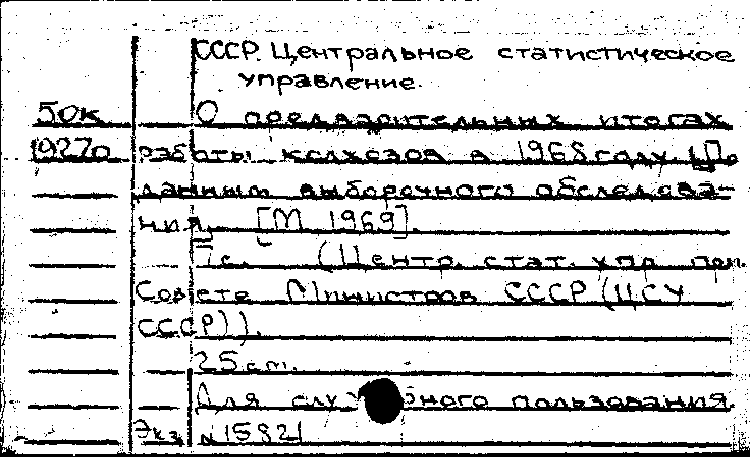 СССР. Центральное статистическое
управление.
50к О предварительных итогах
19270 работы колхозов в 1968 году. (По
данным выборочного обследова-
ния. [М. 1969].
7с. (Центр. стат. упр. при
Совете Министров СССР (ЦСУ
СССР)).
25 см.
Для служебного пользования
Экз. №15821